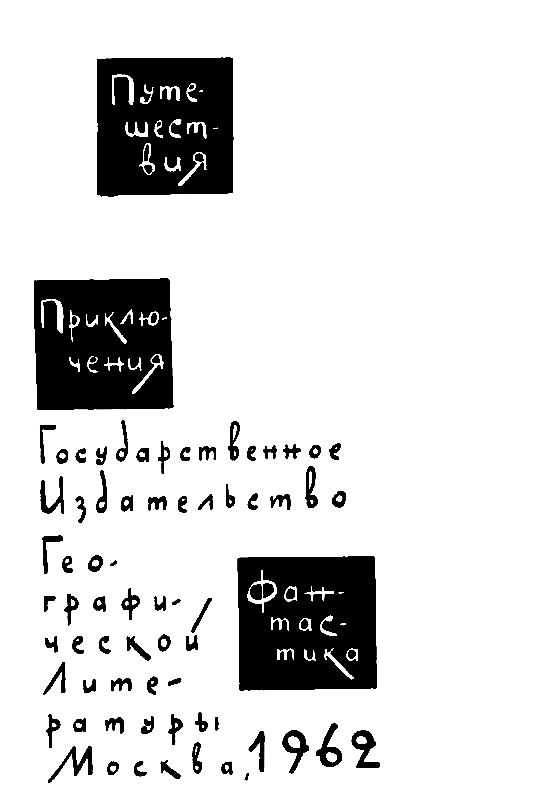 Путе-
шест-
вия
Приклю-
чения
Государственное
Издательство
Гео-
графи-
ческой
Лите-
ратуры
Москва, 1962
Фан-
тас-
тика